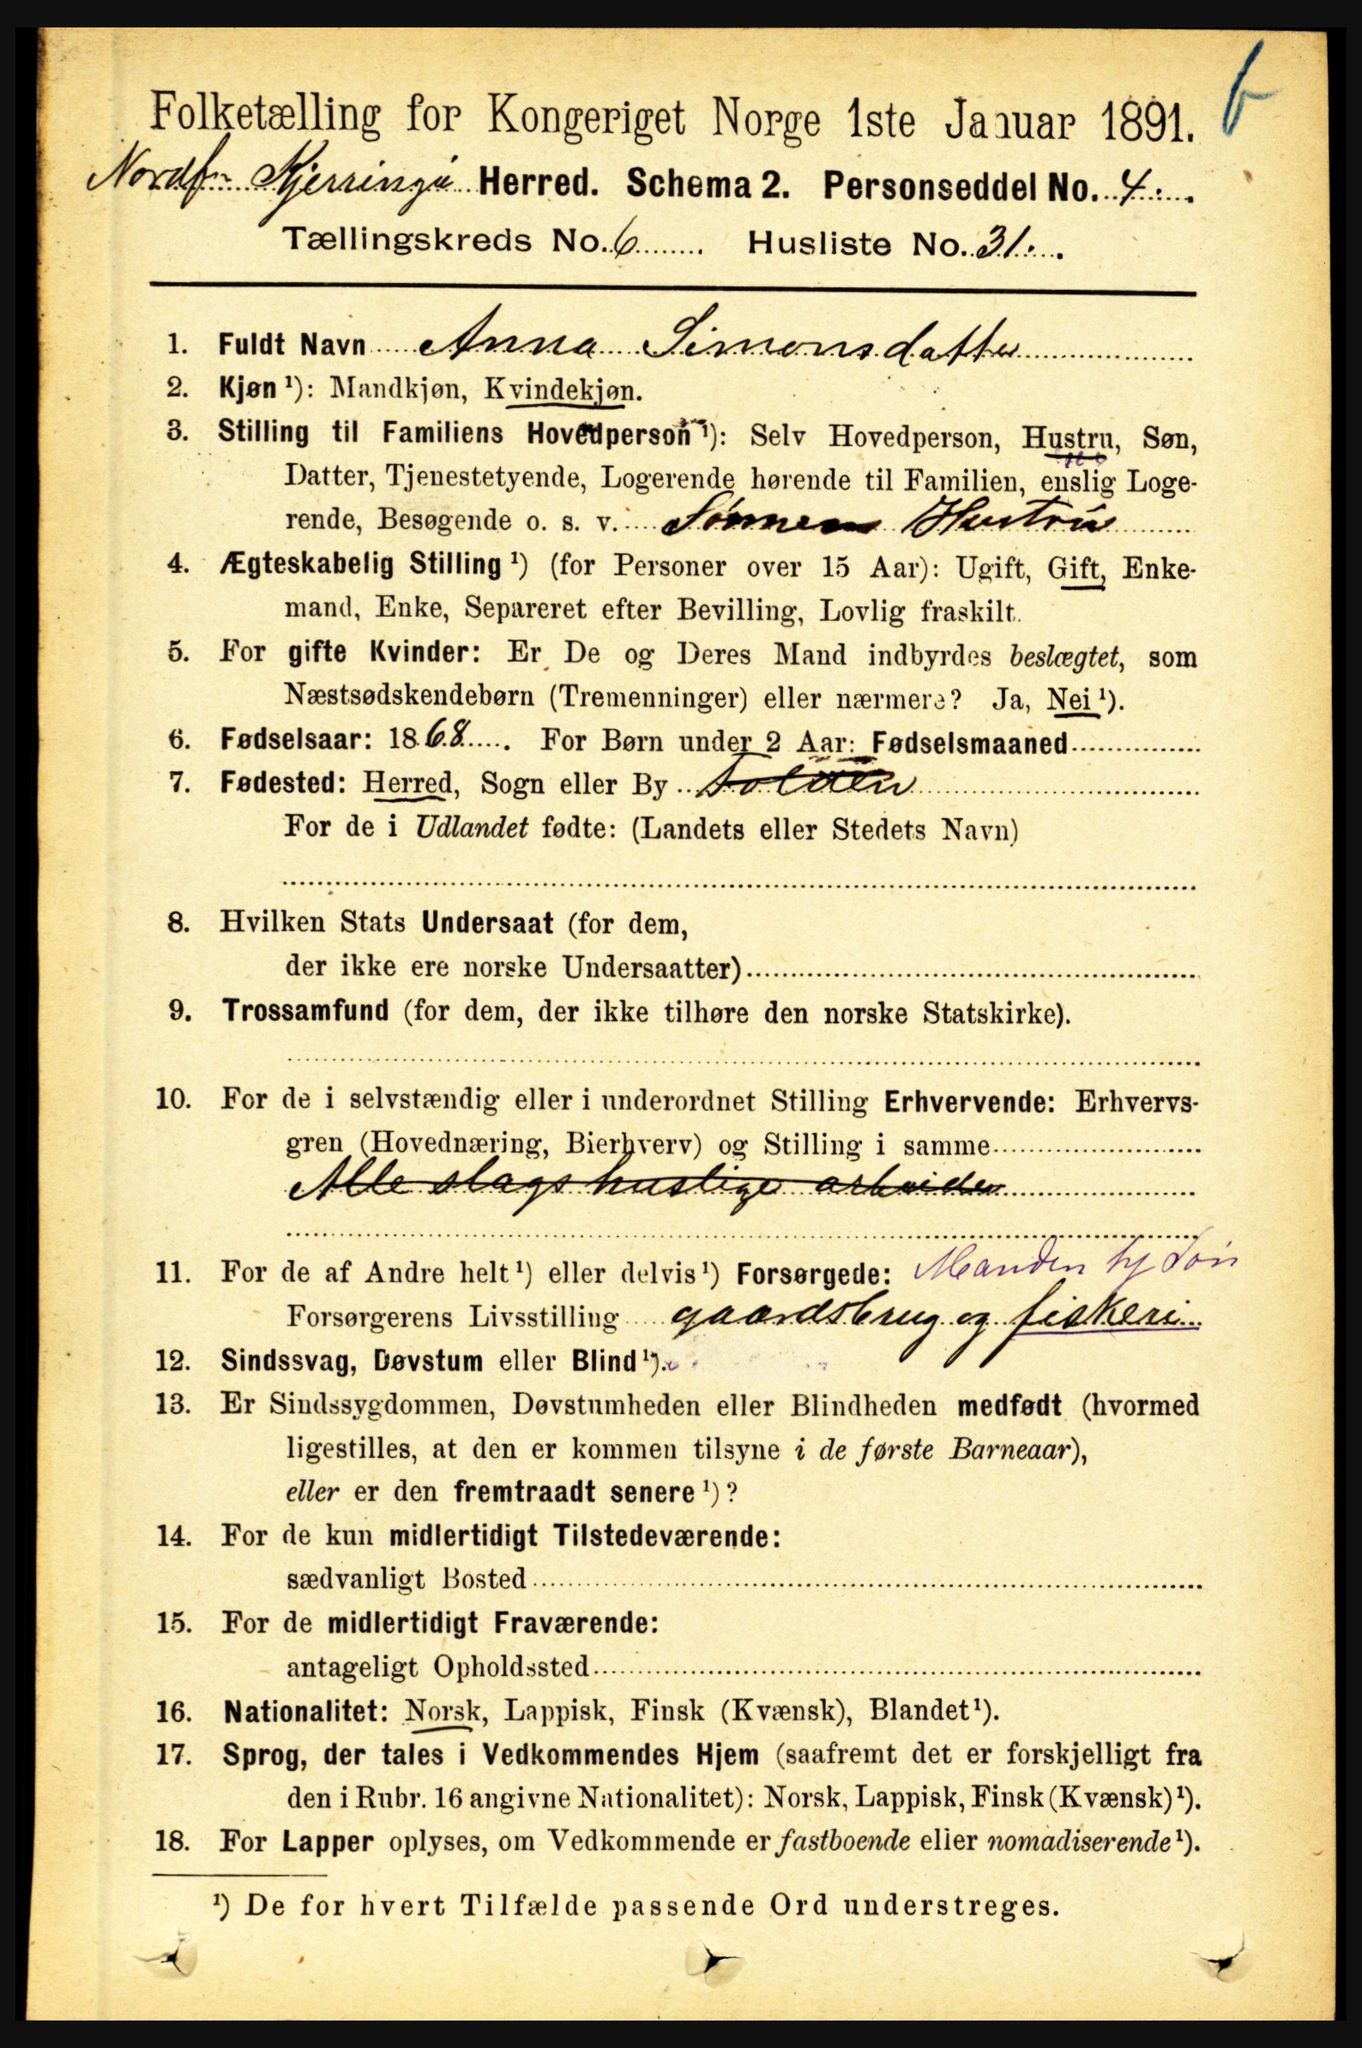 b
Folketælling for Kongeriget Norge 1ste Januar 1891.
Nordf Kjerringø Herred. Schema 2. Personseddel No. 4.
Tællingskreds No. 6 Husliste No. 31.
1. Fuldt Navn Anna Simonsdatter
2. Kjøn ¹): Mandkjøn, Kvindekjøn.
3. Stilling til Familiens Hovedperson ¹): Selv Hovedperson, Hustru, Søn,
Datter, Tjenestetyende, Logerende hørende til Familien, enslig Loge-
rende, Besøgende o. s. v. Sønnens Hustru
4. Ægteskabelig Stilling ¹) (for Personer over 15 Aar): Ugift, Gift, Enke-
mand, Enke, Separeret efter Bevilling, Lovlig fraskilt.
5. For gifte Kvinder: Er De og Deres Mand indbyrdes beslægtet, som
Næstsødskendebørn (Tremenninger) eller nærmere? Ja, Nei ¹).
6. Fødselsaar: 1868. For Børn under 2 Aar: Fødselsmaaned
7. Fødested: Herred, Sogn eller By Folden
For de i Udlandet fødte: (Landets eller Stedets Navn)
8. Hvilken Stats Undersaat (for dem,
der ikke ere norske Undersaatter)
9. Trossamfund (for dem, der ikke tilhøre den norske Statskirke).
10. For de i selvstændig eller i underordnet Stilling Erhvervende: Erhvervs-
gren (Hovednæring, Bierhverv) og Stilling i samme
Alle slags huslige arbeider
11. For de af Andre helt ¹) eller delvis ¹) Forsørgede: Manden hj Søn
Forsørgerens Livsstilling gaardsbrug og fiskeri
12. Sindssvag, Døvstum eller Blind ¹).
13. Er Sindssygdommen, Døvstumheden eller Blindheden medfødt (hvormed
ligestilles, at den er kommen tilsyne i de første Barneaar),
eller er den fremtraadt senere ¹)?
14. For de kun midlertidigt Tilstedeværende:
sædvanligt Bosted
15. For de midlertidigt Fraværende:
antageligt Opholdssted
16. Nationalitet: Norsk, Lappisk, Finsk (Kvænsk), Blandet ¹).
17. Sprog, der tales i Vedkommendes Hjem (saafremt det er forskjelligt fra
den i Rubr. 16 angivne Nationalitet): Norsk, Lappisk, Finsk (Kvænsk) ¹).
18. For Lapper oplyses, om Vedkommende er fastboende eller nomadiserende ¹).
¹) De for hvert Tilfælde passende Ord understreges.